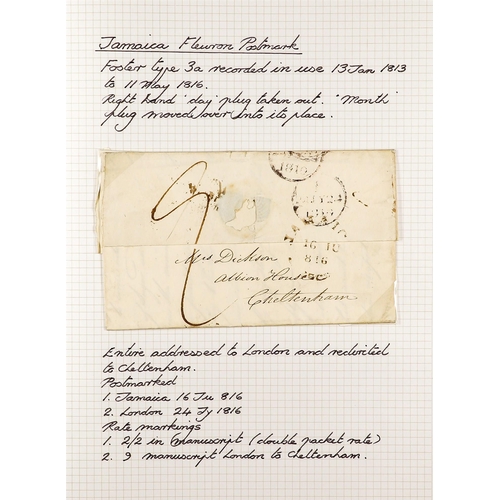 Jamaica Fleuron Postmark
Foster type 3a recorded in use 13 Jan 1813
to 11 May 1816.
Right hand 'day' plug taken out. 'Month'
plug moved over into its place.
1816
JY 24
JAMAIC
16 JU
816
Mrs Dickson
Albion House
Cheltenham
Entire addressed to London and redirected
to Cheltenham.
Postmarked
1. Jamaica 16 Ju 816
2. London 24 Jy 1816
Rate markings
1. 2/2 in manuscript (double packet rate)
2. 9 manuscript London to Cheltenham.